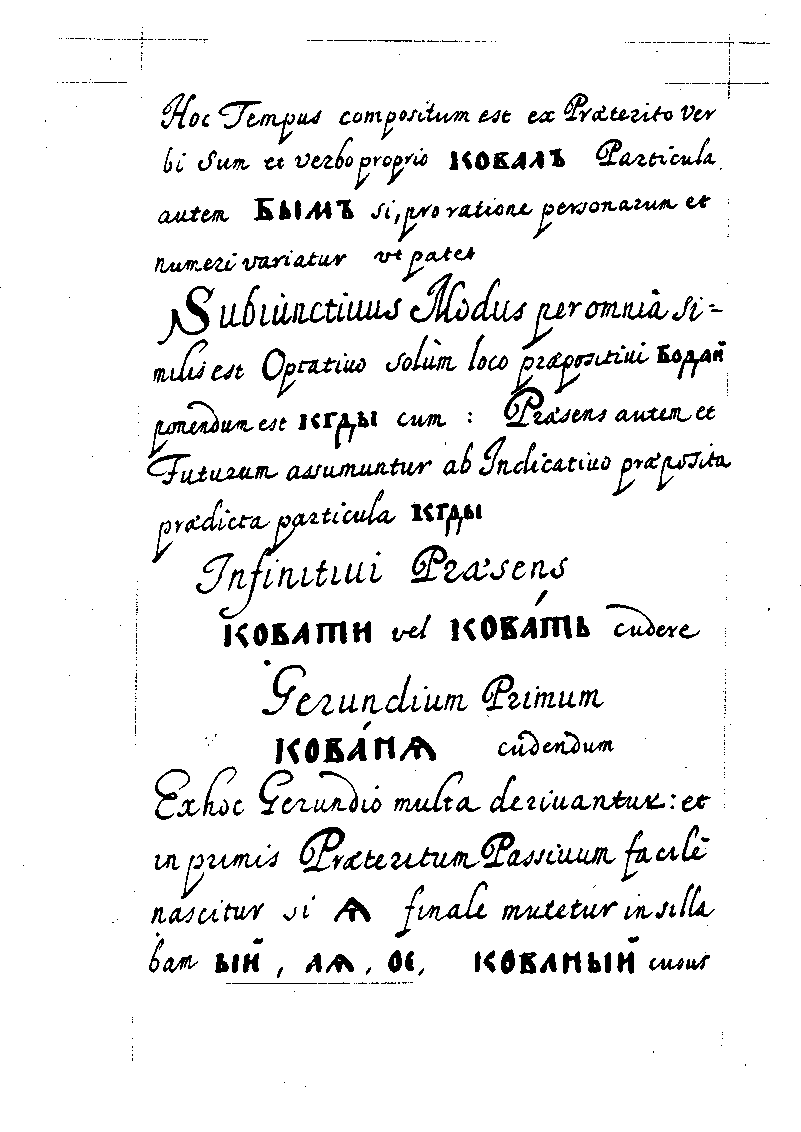 Hoc Tempus compositum est ex Præterito Ver
bi Sum et verbo proprio КОВАЛЪ Particula
autem БЫМЪ si, pro ratione personarum et
numeri variatur vt patet
Subiúnctiuus Modus per omnià si-
milis est Optatiuo solùm loco præpositiui БОДАЙ
ponendum est КГДЫ cum : Præsens autem et
Futurum assumuntur ab Indicatiuo præposita
prædicta particula КГДЫ
Infinitiui Præsens
КОВАТИ vel КОВА́ТЬ cudere
Gerundium Primum
КОВА́НѦ cudendum
Ex hoc Gerundio multa deriuantur : et
in primis Præteritum Passiuum facilè
nascitur si Ѧ finale mutetur in silla
bam ЫЙ, АѦ, ОЄ, КОВАНЫЙ cusus